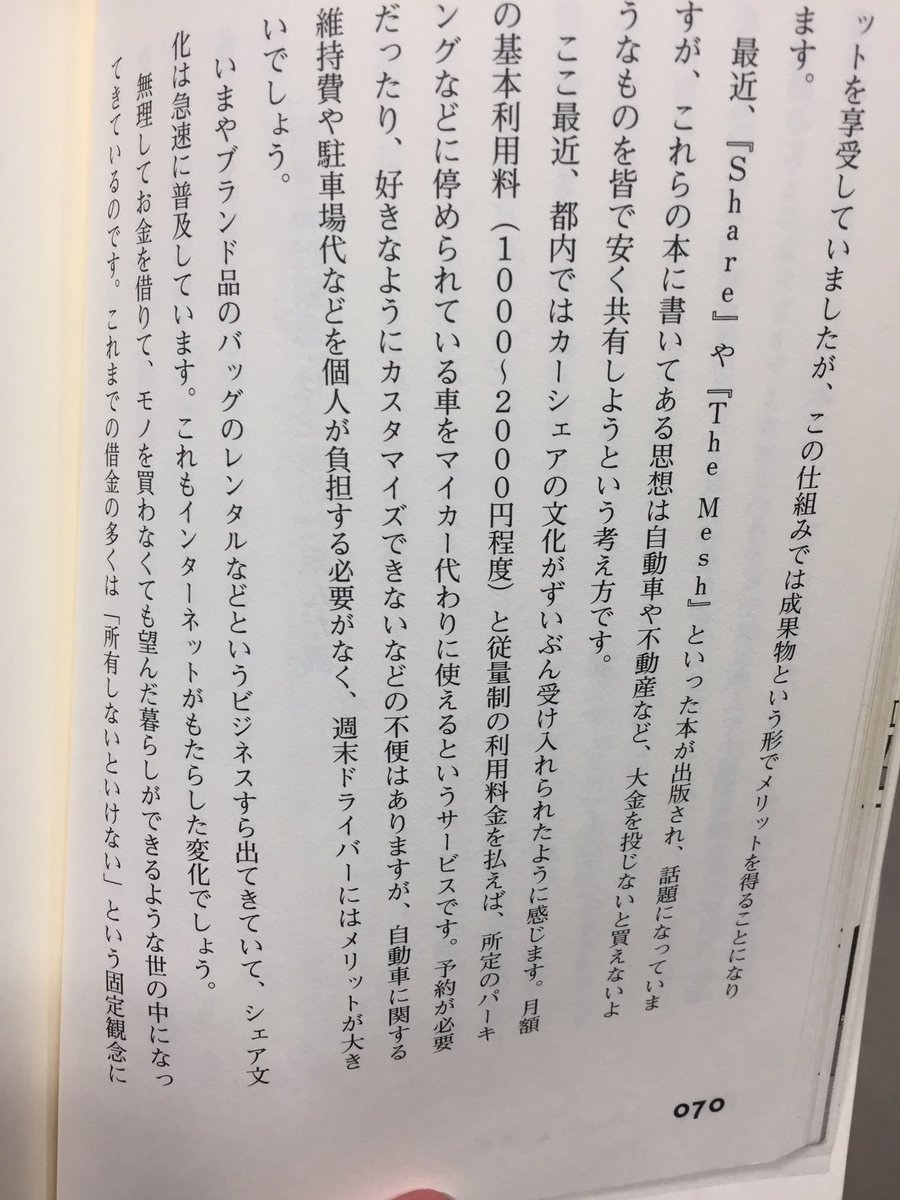 ットを享受していましたが、この仕組みでは成果物という形でメリットを得ることになり
ます。
最近、『Share』や『The Mesh』といった本が出版され、話題になっていま
すが、これらの本に書いてある思想は自動車や不動産など、大金を投じないと買えないよ
うなものを皆で安く共有しようという考え方です。
ここ最近、都内ではカーシェアの文化がずいぶん受け入れられたように感じます。月額
の基本利用料（1000～2000円程度）と従量制の利用料金を払えば、所定のパーキ
ングなどに停められている車をマイカー代わりに使えるというサービスです。予約が必要
だったり、好きなようにカスタマイズできないなどの不便はありますが、自動車に関する
維持費や駐車場代などを個人が負担する必要がなく、週末ドライバーにはメリットが大き
いでしょう。
いまやブランド品のバッグのレンタルなどというビジネスすら出てきていて、シェア文
化は急速に普及しています。これもインターネットがもたらした変化でしょう。
無理してお金を借りて、モノを買わなくても望んだ暮らしができるような世の中になっ
てきているのです。これまでの借金の多くは「所有しないといけない」という固定観念に
070